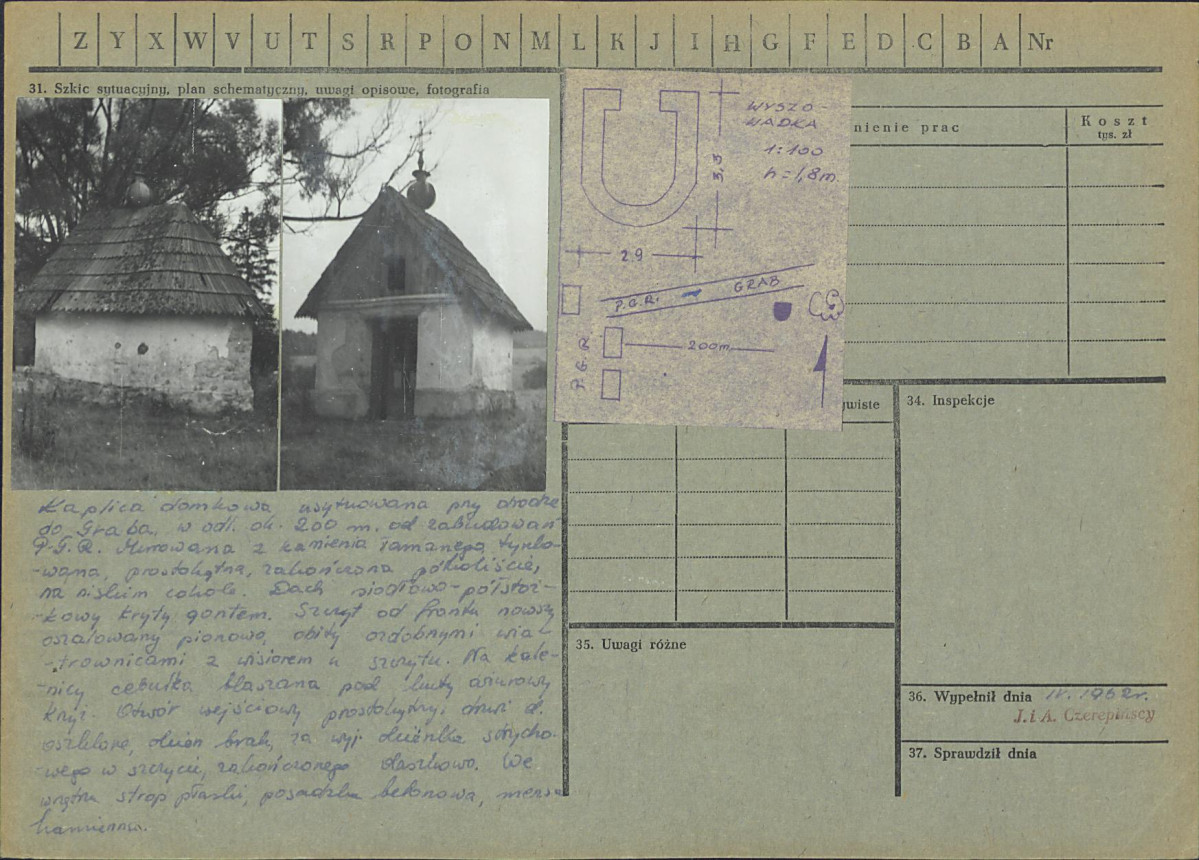 Z Y X W V U T S R P O N M L K J I H G F E D C B A Nr
31. Szkic sytuacyjny, plan schematyczny, uwagi opisowe, fotografia
WYSZO-
WADKA
1:100
h=1,8m.
3,3
2.9
P.G.R. GRAB
200m
P.G.R
nienie prac
Koszt
tys. zł
wiste
34. Inspekcje
Kaplica domkowa usytuowana przy drodze
do Graba, w odl. ok. 200 m. od zabudowań
P.G.R. Murowana z kamienia łamanego, tynko-
-wana, prostokątna, zakończona półkoliście,
na niskim cokole. Dach siodłowo-półstoż-
-kowy kryty gontem. Szczyt od frontu nowszy
oszalowany pionowo, obity ozdobnymi wia-
-trownicami z wisiorem u szczytu. Na kale-
-nicy cebulka blaszana pod kuty ażurowy
krzyż. Otwór wejściowy prostokątny, drzwi d.
oszklone, okien brak, za wyj. okienka strycho-
-wego w szczycie, zakończonego daszkowo. We
wnętrzu strop płaski, posadzka betonowa, mensa
kamienna.
35. Uwagi różne
36. Wypełnił dnia IV. 1962r.
J. i A. Czerepińscy
37. Sprawdził dnia